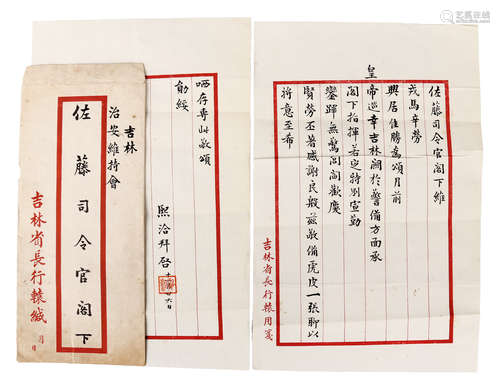 佐藤司令官閣下維
戎馬辛勞
興居佳勝為頌月前
皇
帝巡幸吉林關於警備方面承
閣下指揮若定特別宣勤
鑾蹕無驚閭閻歡慶
賢勞丕著感謝民殷茲敬備虎皮一張聊以
將意至希
吉林省長行轅用箋
哂存專此敬頌
勛綏
熙洽拜啓
六日
吉林
治安維持會
佐藤司令官閣下
吉林省長行轅緘
月
日